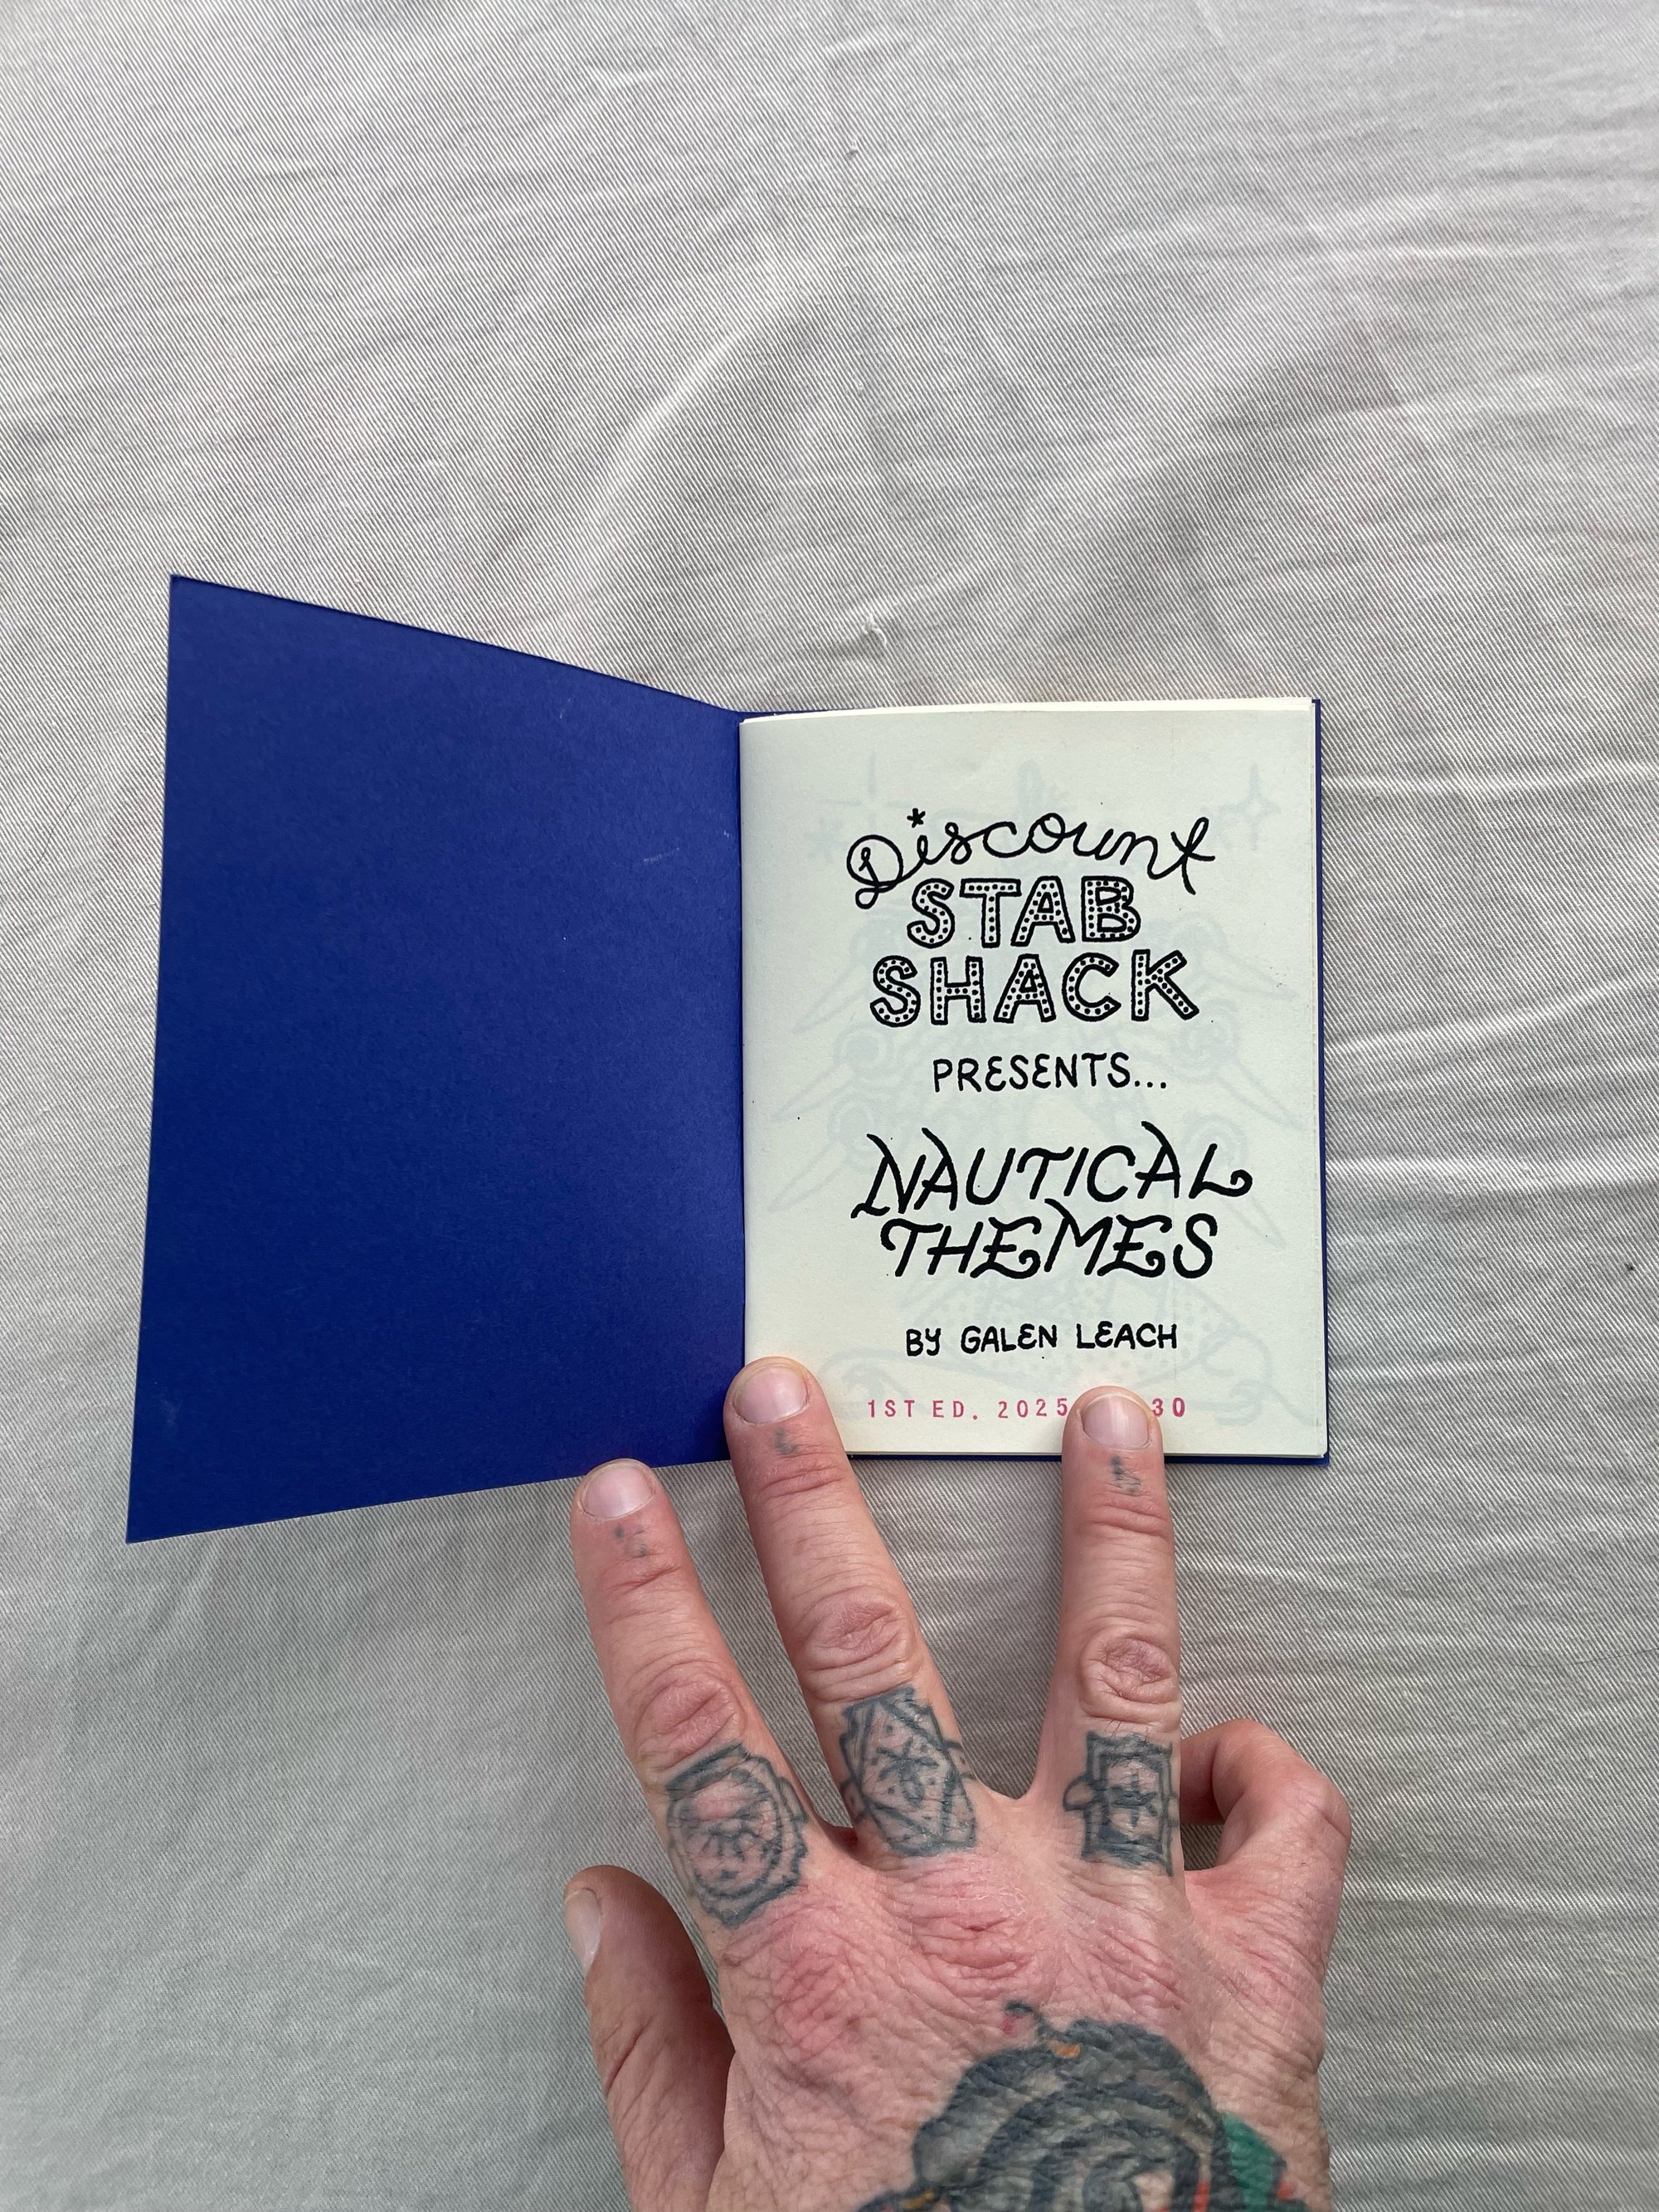 Discount
STAB
SHACK
PRESENTS...
NAUTICAL
THEMES
BY GALEN LEACH
1ST ED. 2025 30